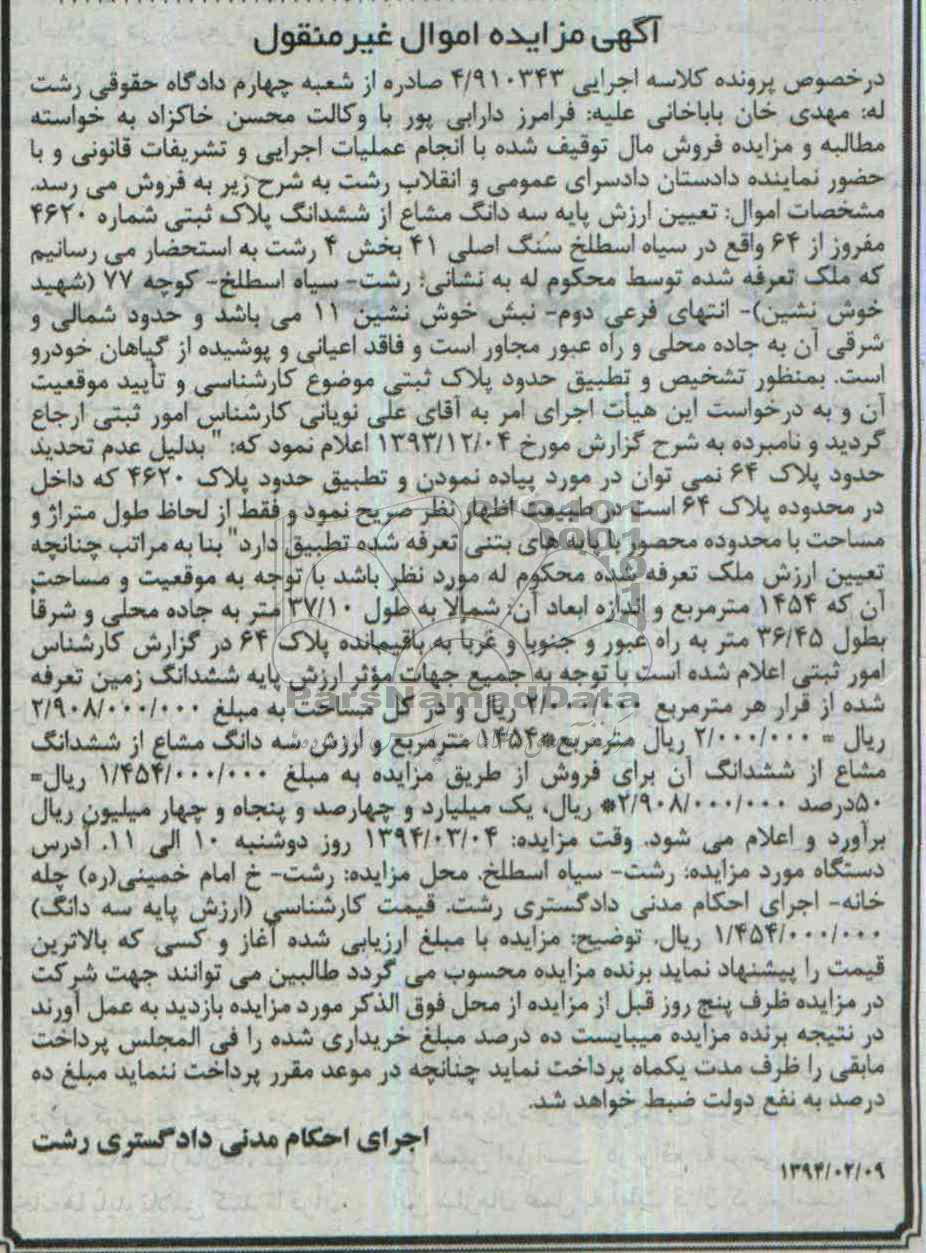 آگهی مزایده اموال غیرمنقول
درخصوص پرونده کلاسه اجرایی ۴/۹۱۰۳۴۳ صادره از شعبه چهارم دادگاه حقوقی رشت
له: مهدی خان باباخانی علیه: فرامرز دارابی پور با وکالت محسن خاکزاد به خواسته
مطالبه و مزایده فروش مال توقیف شده با انجام عملیات اجرایی و تشریفات قانونی و با
حضور نماینده دادستان دادسرای عمومی و انقلاب رشت به شرح زیر به فروش می رسد.
مشخصات اموال: تعیین ارزش پایه سه دانگ مشاع از ششدانگ پلاک ثبتی شماره ۴۶۲۰
مفروز از ۶۴ واقع در سیاه اسطلخ سنگ اصلی ۴۱ بخش ۴ رشت به استحضار می رسانیم
که ملک تعرفه شده توسط محکوم له به نشانی: رشت- سیاه اسطلخ- کوچه ۷۷ (شهید
خوش نشین)- انتهای فرعی دوم- نبش خوش نشین ۱۱ می باشد و حدود شمالی و
شرقی آن به جاده محلی و راه عبور مجاور است و فاقد اعیانی و پوشیده از گیاهان خودرو
است. بمنظور تشخیص و تطبیق حدود پلاک ثبتی موضوع کارشناسی و تأیید موقعیت
آن و به درخواست این هیأت اجرای امر به آقای علی نویانی کارشناس امور ثبتی ارجاع
گردید و نامبرده به شرح گزارش مورخ ۱۳۹۳/۱۲/۰۴ اعلام نمود که: "بدلیل عدم تحدید
حدود پلاک ۶۴ نمی توان در مورد پیاده نمودن و تطبیق حدود پلاک ۴۶۲۰ که داخل
در محدوده پلاک ۶۴ است در طبیعت اظهار نظر صریح نمود و فقط از لحاظ طول متراژ و
مساحت با محدوده محصور با پایه های بتنی تعرفه شده تطبیق دارد" بنا به مراتب چنانچه
تعیین ارزش ملک تعرفه شده محکوم له مورد نظر باشد با توجه به موقعیت و مساحت
آن که ۱۴۵۴ مترمربع و اندازه ابعاد آن: شمالاً به طول ۳۷/۱۰ متر به جاده محلی و شرقاً
بطول ۳۶/۴۵ متر به راه عبور و جنوبا و غربا به باقیمانده پلاک ۶۴ در گزارش کارشناس
امور ثبتی اعلام شده است با توجه به جمیع جهات مؤثر ارزش پایه ششدانگ زمین تعرفه
شده از قرار هر مترمربع ۲/۰۰۰/۰۰۰ ریال و در کل مساحت به مبلغ ۲/۹۰۸/۰۰۰/۰۰۰
ریال = ۲/۰۰۰/۰۰۰ ریال مترمربع*۱۴۵۴ مترمربع و ارزش سه دانگ مشاع از ششدانگ
مشاع از ششدانگ آن برای فروش از طریق مزایده به مبلغ ۱/۴۵۴/۰۰۰/۰۰۰ ریال=
۵۰درصد ۲/۹۰۸/۰۰۰/۰۰۰* ریال، یک میلیارد و چهارصد و پنجاه و چهار میلیون ریال
برآورد و اعلام می شود. وقت مزایده: ۱۳۹۴/۰۳/۰۴ روز دوشنبه ۱۰ الی ۱۱. آدرس
دستگاه مورد مزایده: رشت- سیاه اسطلخ. محل مزایده: رشت- خ امام خمینی(ره) چله
خانه- اجرای احکام مدنی دادگستری رشت. قیمت کارشناسی (ارزش پایه سه دانگ)
۱/۴۵۴/۰۰۰/۰۰۰ ریال. توضیح: مزایده با مبلغ ارزیابی شده آغاز و کسی که بالاترین
قیمت را پیشنهاد نماید برنده مزایده محسوب می گردد طالبین می توانند جهت شرکت
در مزایده ظرف پنج روز قبل از مزایده از محل فوق الذکر مورد مزایده بازدید به عمل آورند
در نتیجه برنده مزایده میبایست ده درصد مبلغ خریداری شده را فی المجلس پرداخت
مابقی را ظرف مدت یکماه پرداخت نماید چنانچه در موعد مقرر پرداخت ننماید مبلغ ده
درصد به نفع دولت ضبط خواهد شد.
اجرای احکام مدنی دادگستری رشت
۱۳۹۴/۰۲/۰۹
ParsNamadData